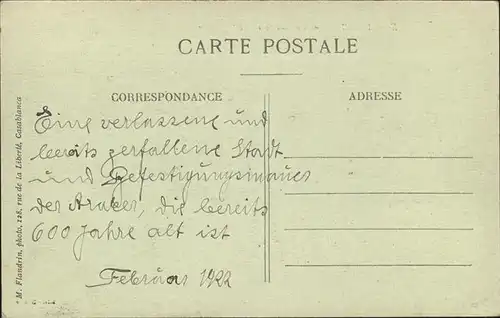 CARTE POSTALE
CORRESPONDANCE
ADRESSE
Eine verlassene und
bereits zerfallene Stadt
und Befestigungsmauer
der Araber, die bereits
600 Jahre alt ist
Februar 1922
M. Flandrin, photo, 128, rue de la Liberté, Casablanca